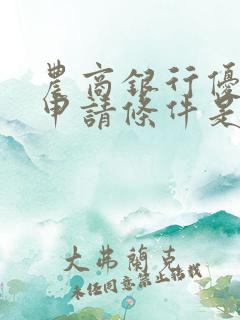 農商銀行優
申請條件是
大弗蘭克
未任同意禁止轉載